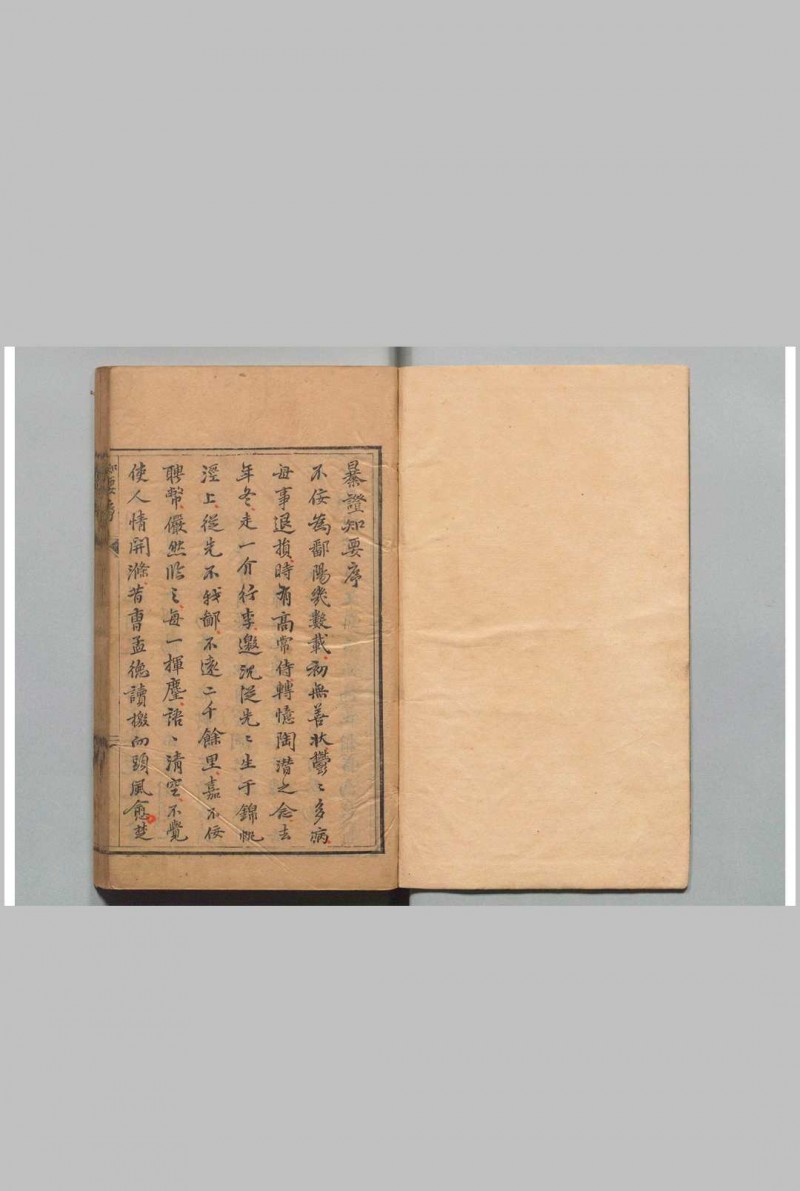 暴證知要序
不佞為鄱陽幾數載初無善狀鬱〻多病
每事退損時有高常侍轉憶陶潛之念去
年冬走一介行李邀沈從先〻生于錦帆
涇上從先不我鄙不遠二千餘里嘉不佞
聘幣儼然臨之每一揮麈語〻清空不覺
使人情開滌昔曹孟德讀檄而頭風愈楚
知要序